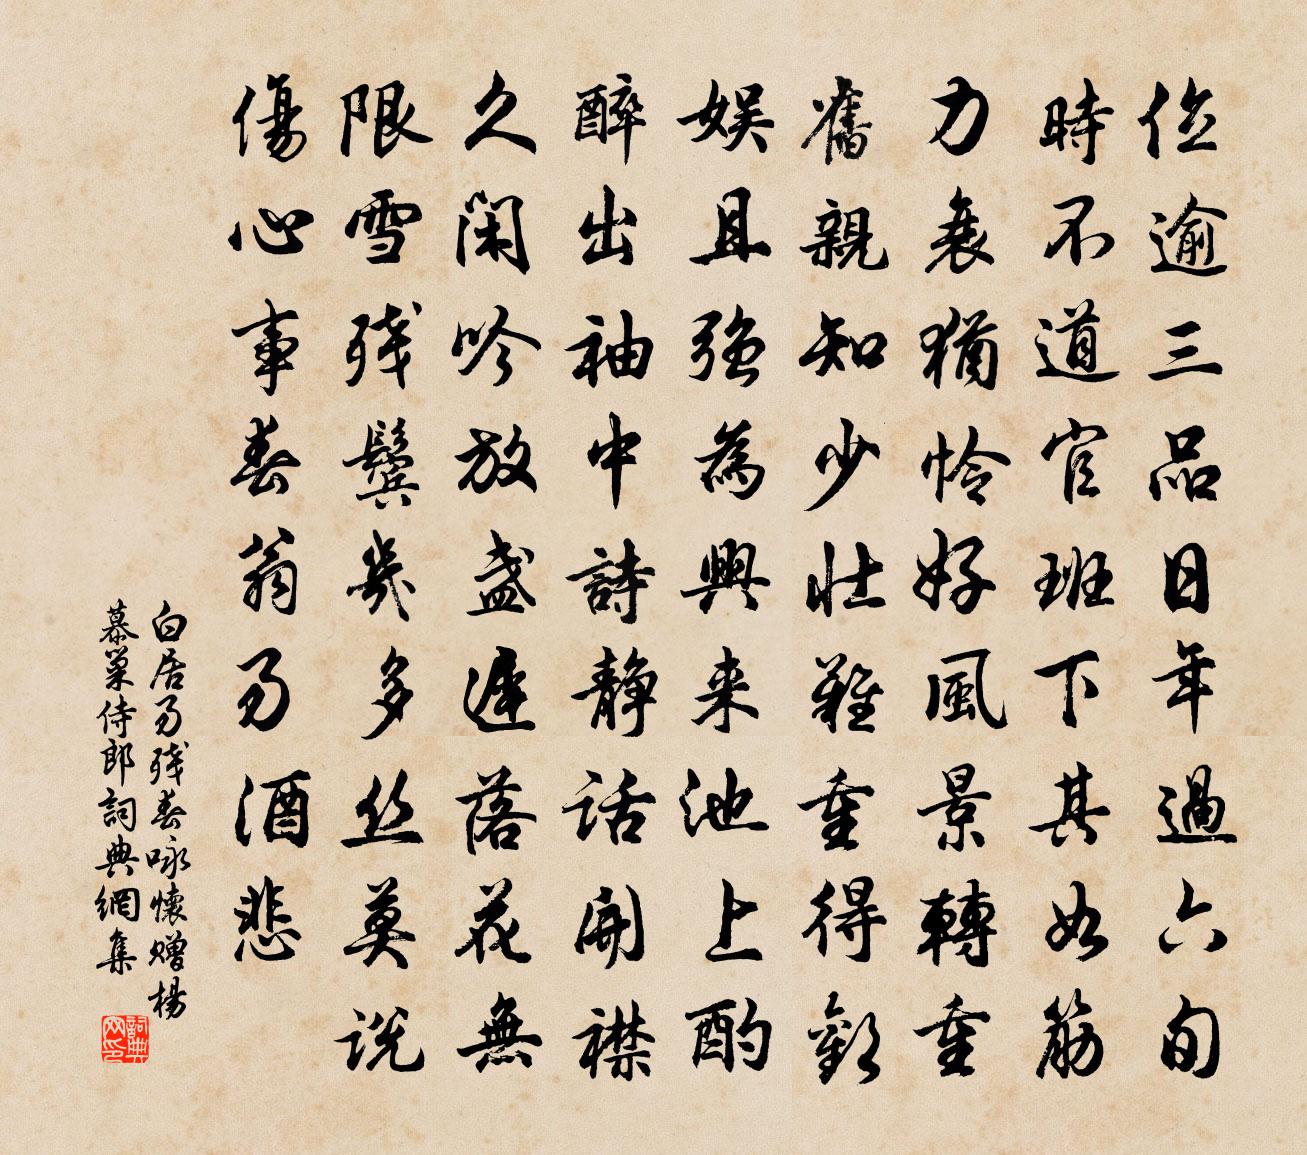 位逾三品日年過六旬
時不道官班下其如筋
力衰猶怜好風景轉重
舊親知少壯難重得歡
娱且強為興来池上酌
醉出袖中詩静話開襟
久閑吟放盞遲落花無
限雪残鬢幾多丝莫說
傷心事春翁易酒悲
白居易残春咏懷赠楊
慕巢侍郎詞典網集
詞典
网印